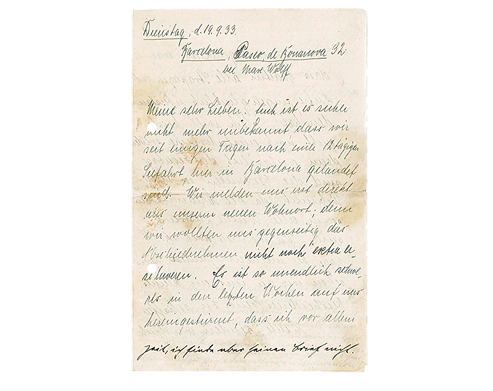 Dienstag, d. 19.9.33.
Barcelona, Paseo de Bonanova 92
bei Max Wolff
Meine sehr Lieben! Euch ist es sicher
nicht mehr unbekannt dass wir
seit einigen Tagen nach einer 12 tägigen
Seefahrt hier in Barcelona gelandet
sind. Wir melden uns erst direkt
aus unserm neuen Wohnort, denn
wir wollten uns gegenseitig das
Abschiednehmen nicht noch extra er-
schweren. Es ist so unendlich schwe-
res in den letzten Wochen auf uns
hereingestürmt, dass ich vor allem
ich finde aber keinen nicht.